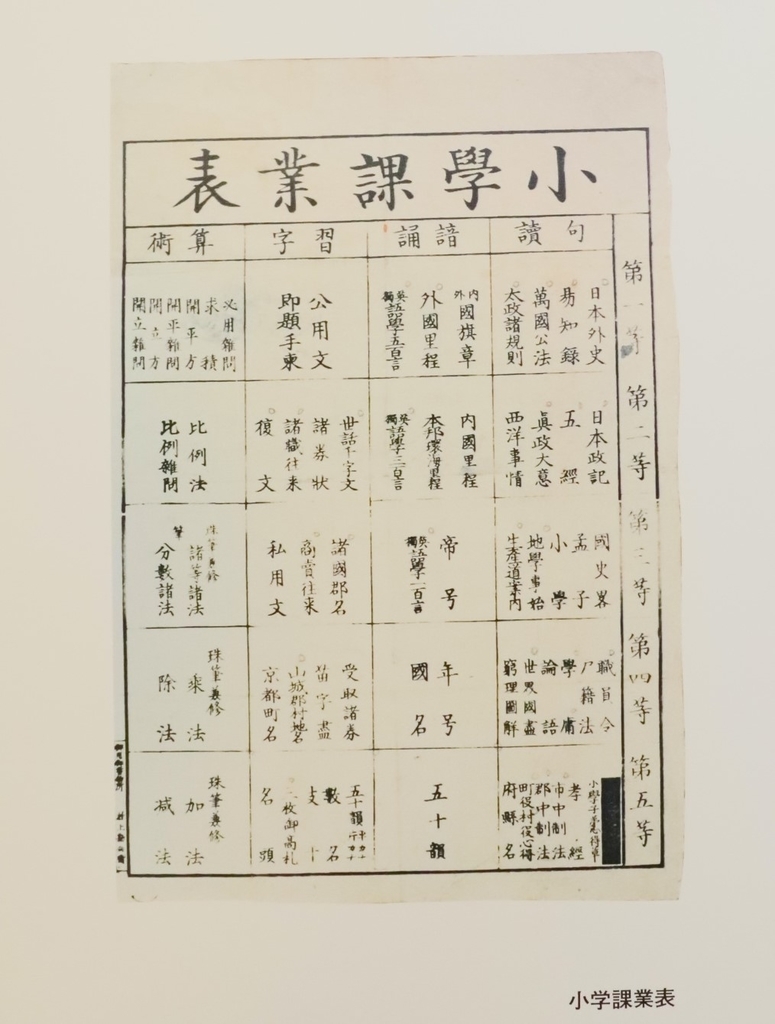 小學課業表
句讀
諳誦
習字
算術
第一等
日本外史
易知錄
萬國公法
太政諸規則
内外國旗章
外國里程
英獨語學五百言
公用文
即題手柬
必用雜問
求積
開平方
開平雜問
開立方
開立雜問
第二等
日本政記
五經
真政大意
西洋事情
内國里程
本邦環海里程
英獨語學三百言
世話千字文
諸券狀
諸職往来
復文
比例法
比例雜問
第三等
國史畧
孟子
小學
地學事始
生產道案内
帝号
英獨語學一百言
諸國郡名
商賣往来
私用文
珠筆兼修
諸等諸法
分數諸法
第四等
職員令
戸籍法
學庸
論語
世界國盡
窮理圖解
年号
國名
受取諸券
苗字盡
山城郡村地名
京都町名
珠筆兼修
乘法
除法
第五等
孝經
市中制法
郡中制法
町役村役心得
府縣名
五十韻
五十韻
數名
二枚御高札
名頭
珠筆兼修
加法
减法
小学課業表